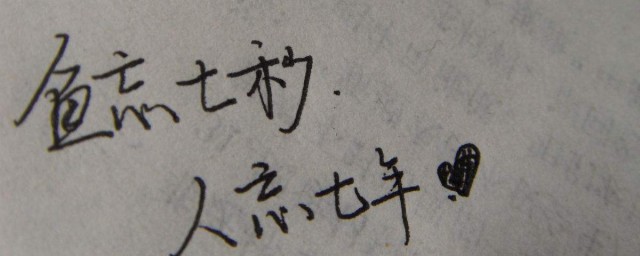 鱼忘七秒.
人忘七年